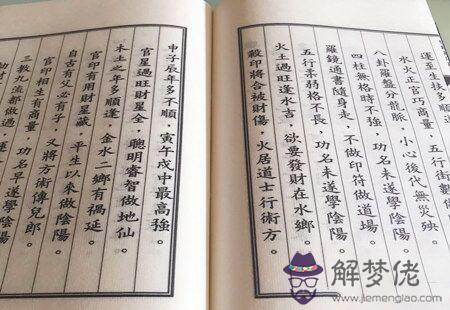 運至生扶多順
水火正官巧商量，五行街數
八卦羅盤分龍脈，小心後代無災殃。
四柱無格時不強，功名未遂學陰陽。
羅鏡通書隨身走，不做印符做道場。
五行柔弱格不長，功名未遂學陰陽。
火土過旺逢水吉，欲要發財在水鄉。
穀印將合被財傷，火居道士行術方。
申子辰年多不順，寅午戌中最高強。
官星過旺財星全，聰明睿智做地仙。
木土之年多順逢，金水二鄉有禍延。
官印有用財星藏，平生以來做陰陽。
自古有父必有子，又將方術傳兒郎。
官印相生有商量，功名早遂學陰陽。
三教九流都做過，運
解梦佬
www.jiemenglao.com